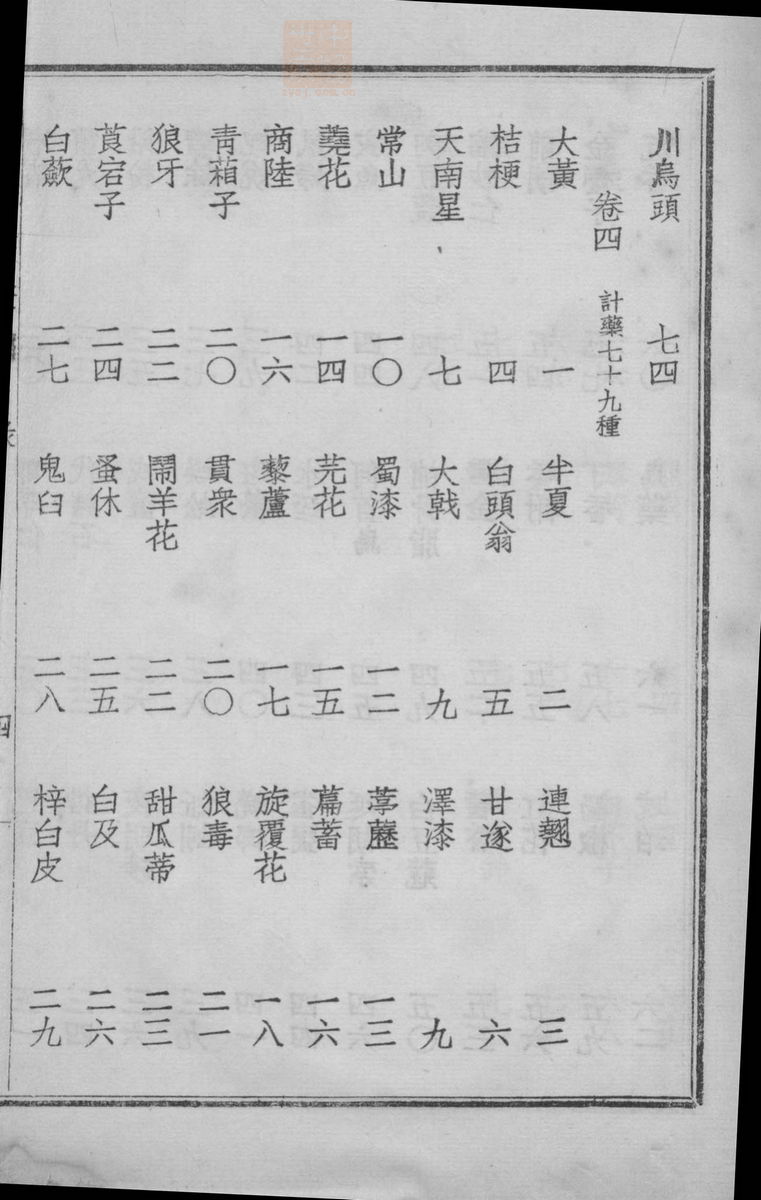 川烏頭 七四
卷四 計藥七十九種
大黃 一 半夏 二 連翹 三
桔梗 四 白頭翁 五 甘遂 六
天南星 七 大戟 九 澤漆 九
常山 一〇 蜀漆 一二 葶藶 一三
蕘花 一四 芫花 一五 萹蓄 一六
商陸 一六 藜蘆 一七 旋覆花 一八
青葙子 二〇 貫衆 二〇 狼毒 二一
狼牙 二二 鬧羊花 二二 甜瓜蒂 二三
莨宕子 二四 蚤休 二五 白及 二六
白蘞 二七 鬼臼 二八 梓白皮 二九
四